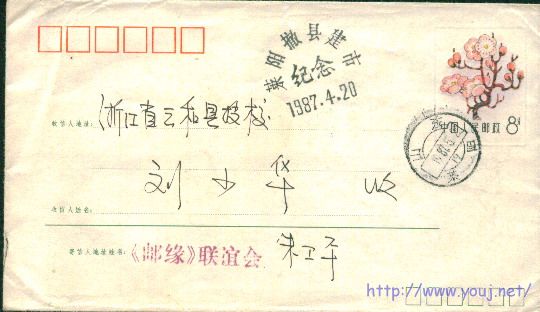 莱阳撤县建市
纪念
1987.4.20
中国人民邮政 8分
收信人地址:
浙江省云和县技校
刘少华 收
收信人姓名:
寄信人地址姓名:
《邮缘》联谊会
朱卫平
http://www.youj.net/